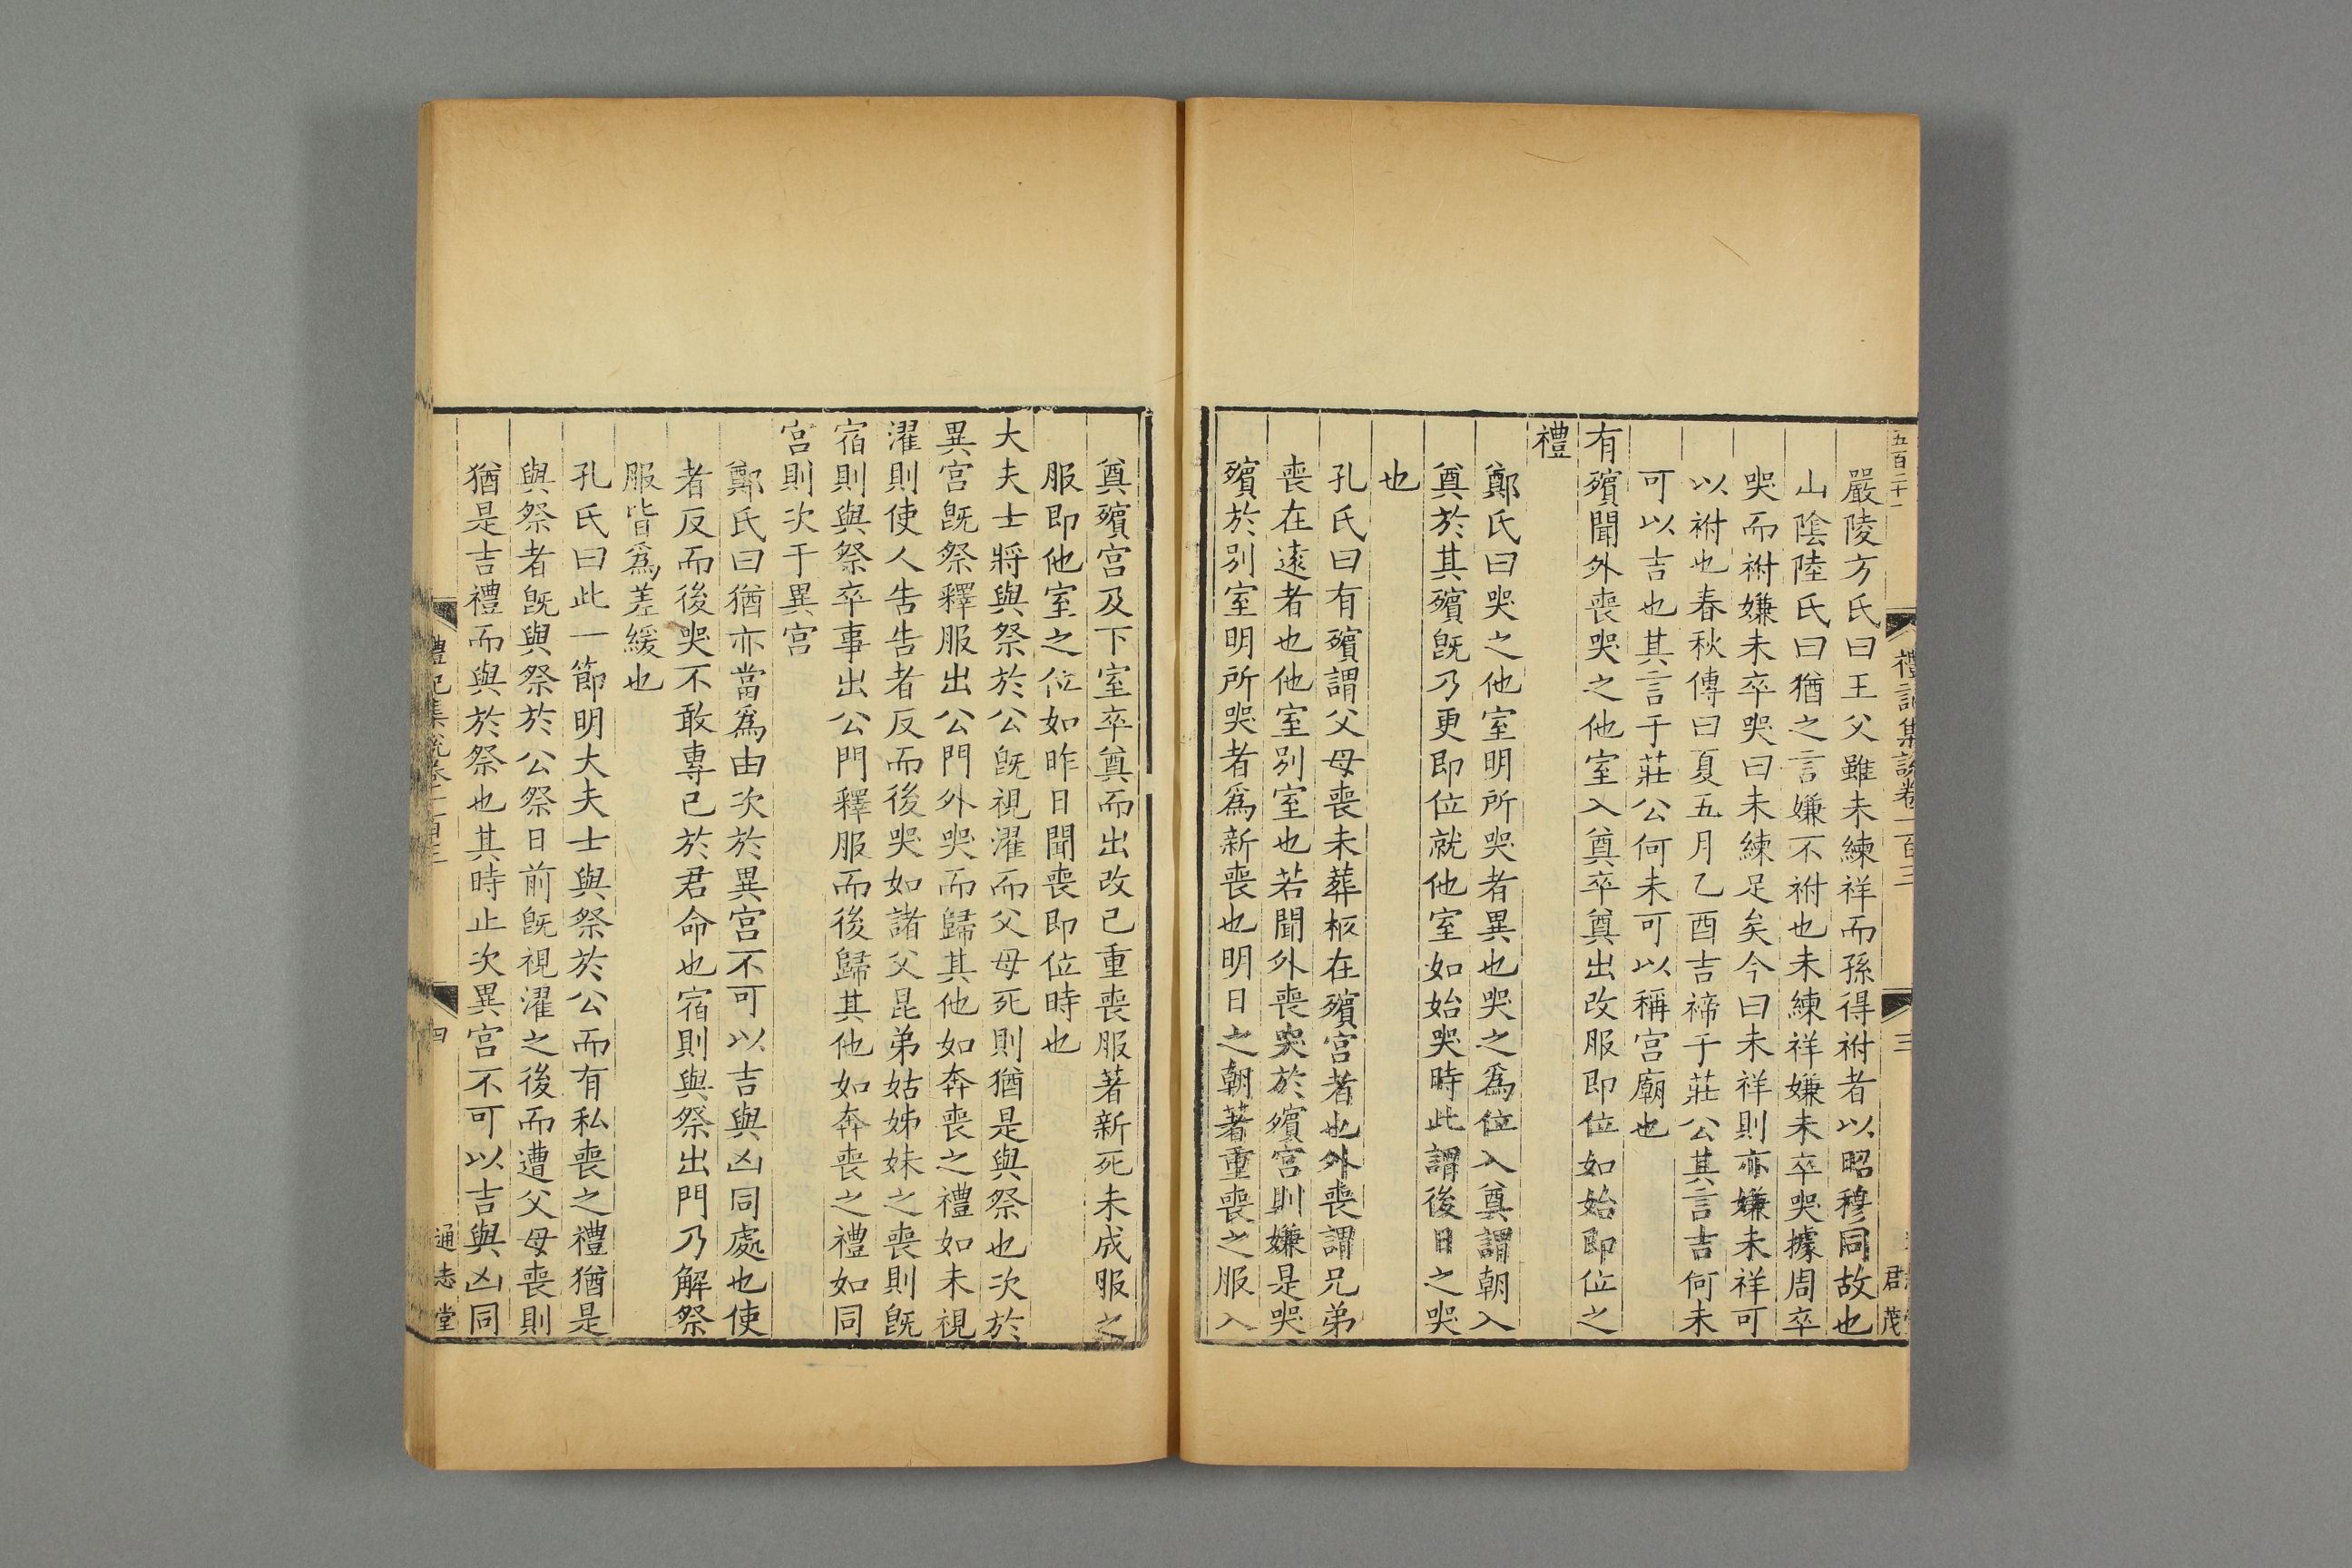 五百二十一
禮記集說卷一百三
三
君茂
嚴陵方氏曰王父雖未練祥而孫得祔者以昭穆同故也
山陰陸氏曰猶之言嫌不祔也未練祥嫌未卒哭據周卒
哭而祔嫌未卒哭曰未練足矣今曰未祥則亦嫌未祥可
以祔也春秋傳曰夏五月乙酉吉禘于莊公其言吉何未
可以吉也其言于莊公何未可以稱宫廟也
有殯聞外喪哭之他室入奠卒奠出改服即位如始即位之
禮
鄭氏曰哭之他室明所哭者異也哭之爲位入奠謂朝入
奠於其殯旣乃更即位就他室如始哭時此謂後日之哭
也
孔氏曰有殯謂父母喪未葬柩在殯宫者也外喪謂兄弟
喪在遠者也他室别室也若聞外喪哭於殯宫則嫌是哭
殯於别室明所哭者爲新喪也明日之朝著重喪之服入
奠殯宫及下室卒奠而出改已重喪服著新死未成服之
服即他室之位如昨日聞喪即位時也
大夫士將與祭於公旣視濯而父母死則猶是與祭也次於
異宫旣祭釋服出公門外哭而歸其他如奔喪之禮如未視
濯則使人告告者反而後哭如諸父昆弟姑姊妹之喪則旣
宿則與祭卒事出公門釋服而後歸其他如奔喪之禮如同
宫則次于異宫
鄭氏曰猶亦當爲由次於異宫不可以吉與凶同處也使
者反而後哭不敢專已於君命也宿則與祭出門乃解祭
服皆爲差緩也
孔氏曰此一節明大夫士與祭於公而有私喪之禮猶是
與祭者旣與祭於公祭日前旣視濯之後而遭父母喪則
猶是吉禮而與於祭也其時止次異宫不可以吉與凶同
禮記集說卷一百三
四
通志堂